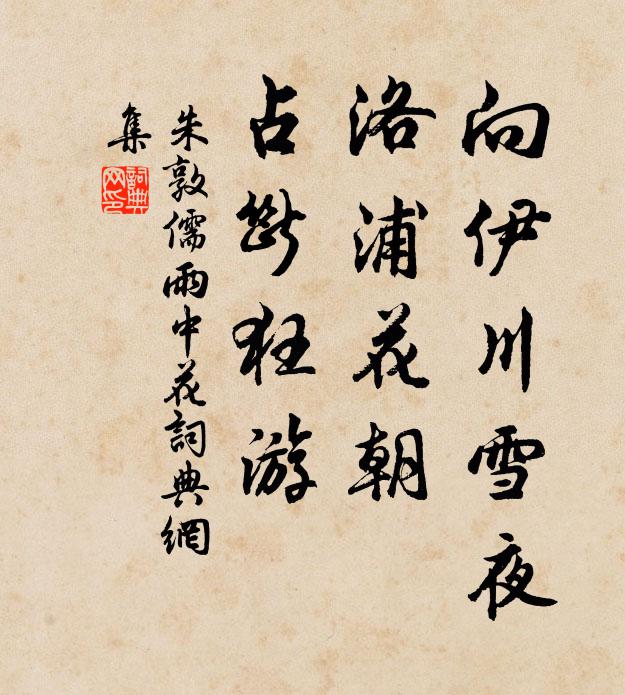 向伊川雪夜
洛浦花朝
占断狂游
朱敦儒雨中花詞典網
集
詞典网印